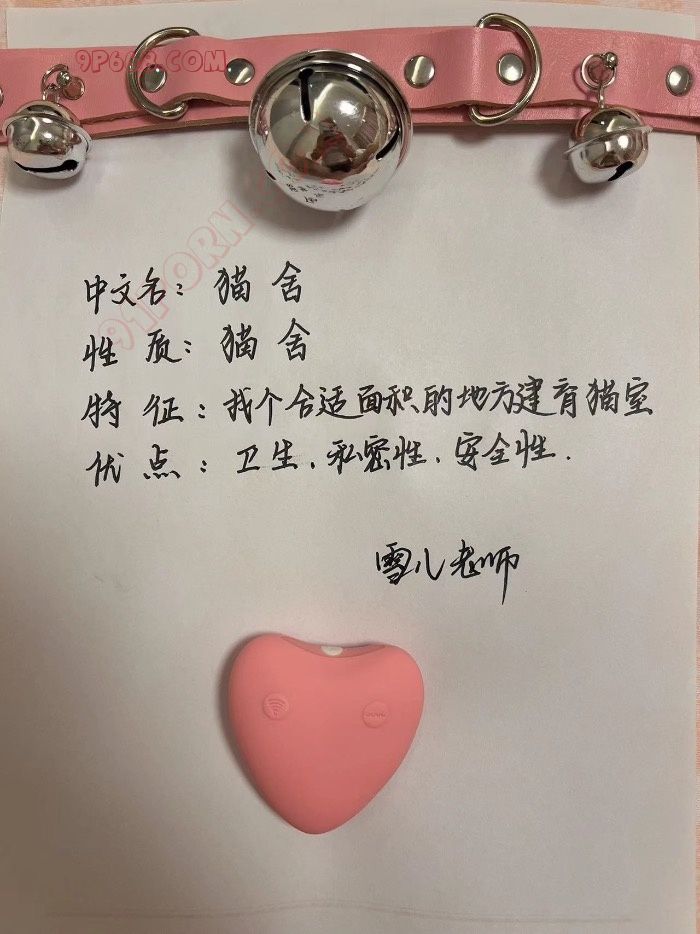 9P69.COM
91PORN
中文名：猫舍
性质：猫舍
特征：找个合适面积的地方建育猫室
优点：卫生、私密性、安全性.
雪儿老师